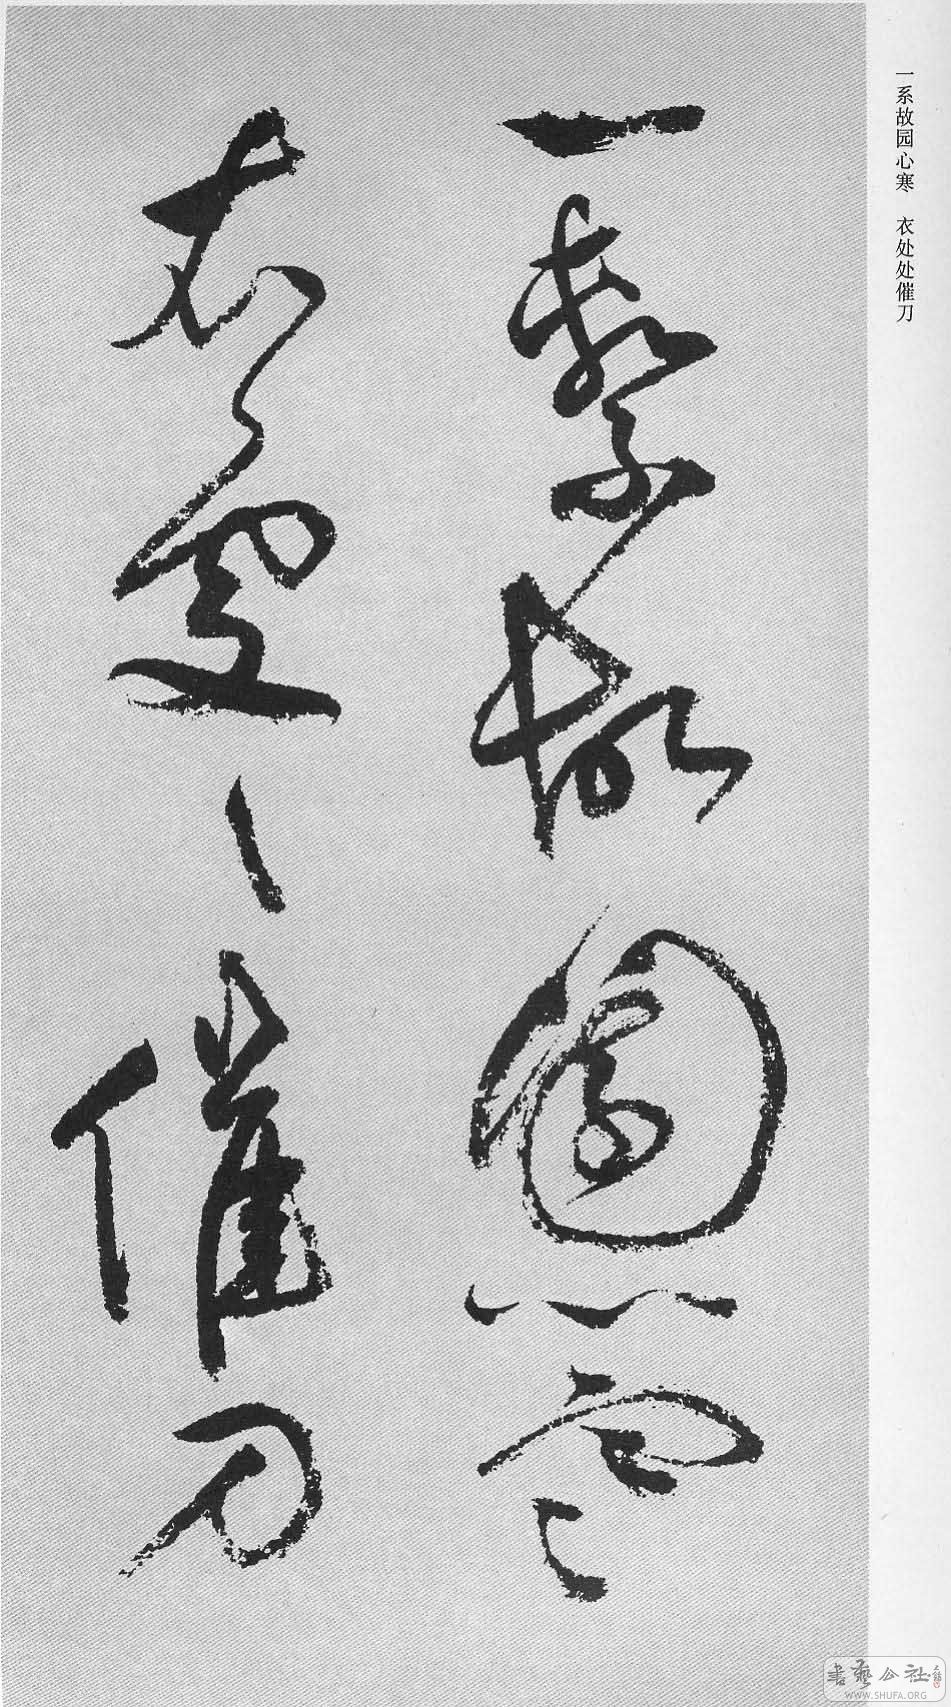 一系故园心寒　衣处处催刀
一繫故園心寒
衣處〻催刀
書藝公社
WWW.SHUFA.ORG